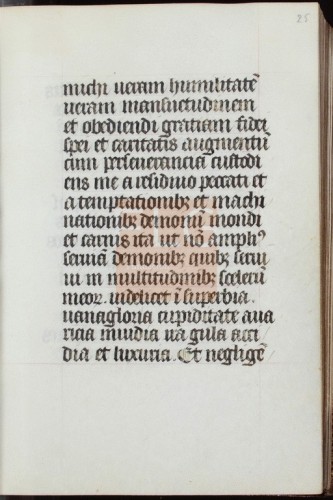 25
michi ueram humilitatē
ueram mansuetudinem
et obediendi gratiam fidei
spei et caritatis augmentū
cum perseuerancia custodi
ens me a residiuo peccati et
a temptationibꝫ et machi
nationibꝫ demonū mondi
et carnis ita ut nō ampliꝰ
seruiā demonibꝫ quibꝫ serui
ui in multitudinibꝫ scelerū
meoꝝ. uidelicet ī superbia.
uanagloria cupiditate aua
ricia inuidia ira gula acci
dia et luxuria. Et negligē